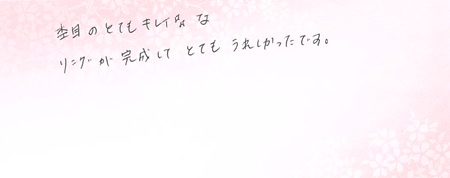 杢目のとてもキレイな
リングが完成して とても うれしかったです。